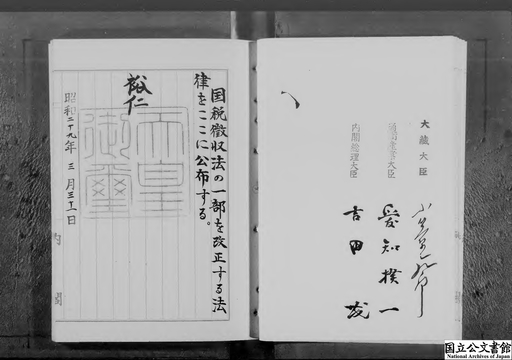 大蔵大臣
小笠原三九郎
通商産業大臣
愛知揆一
内閣総理大臣
吉田茂
国税徴収法の一部を改正する法
律をここに公布する。
裕仁
天皇
御璽
昭和二十九年三月三十一日
国立公文書館
National Archives of Japan